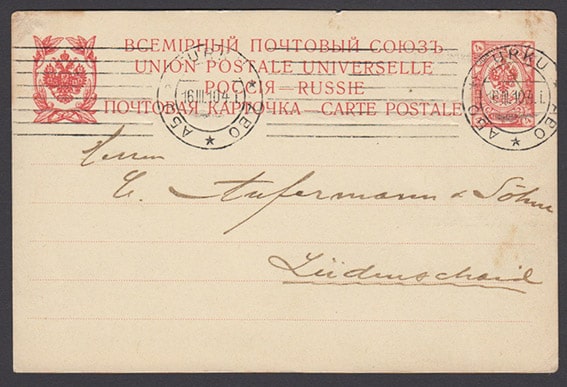 ВСЕМІРНЫЙ ПОЧТОВЫЙ СОЮЗЪ
UNION POSTALE UNIVERSELLE
РОССІЯ – RUSSIE
ПОЧТОВАЯ КАРТОЧКА – CARTE POSTALE
TURKU
16.III.10
АБО * ÅBO
TURKU
16.III.10
АБО * ÅBO
Herrn
C. Aufermann & Söhne
Lüdenscheid